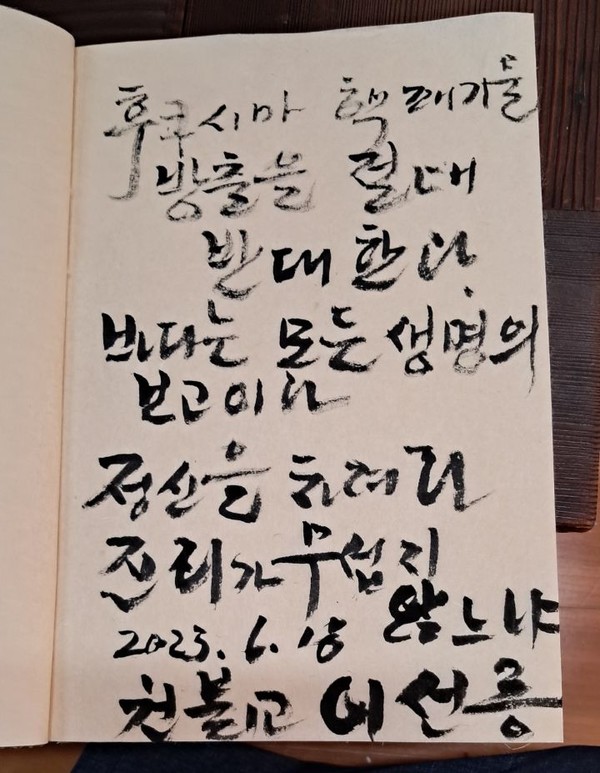 후쿠시마 핵폐기물
방출을 절대
반대한다.
바다는 모든 생명의
보고이다
정신을 차려라
진리가 무섭지
않느냐
2023. 6. 18
천불교 이선릉